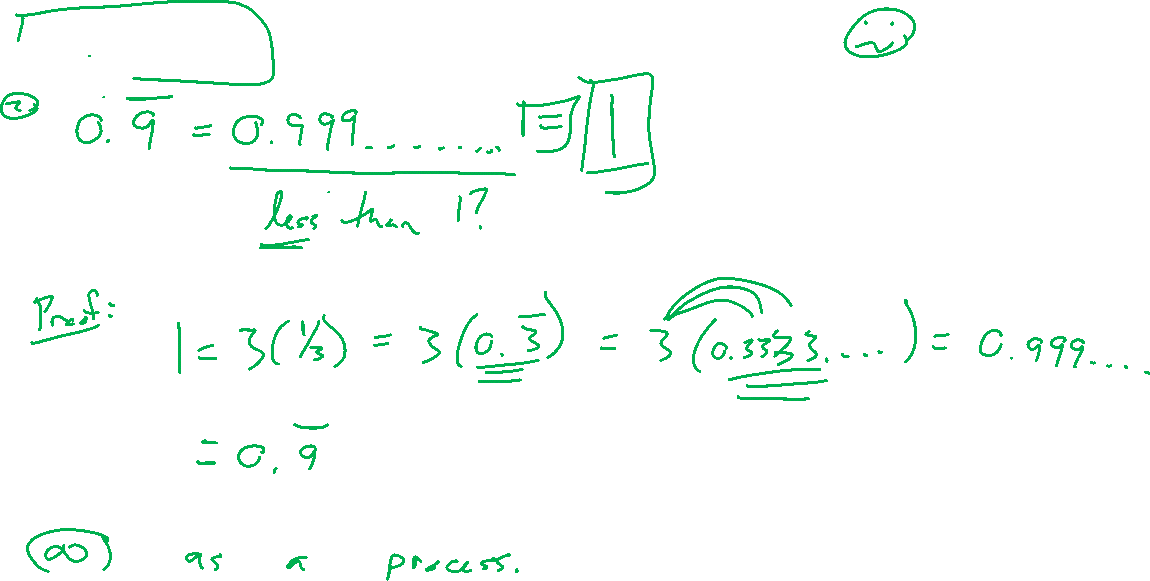 ② 0.9̅ = 0.999......... ≡ 1
less than 1?
Proof:
1 = 3(1/3) = 3(0.3̅) = 3(0.3333....) = 0.999....
= 0.9̅
∞ as a process.